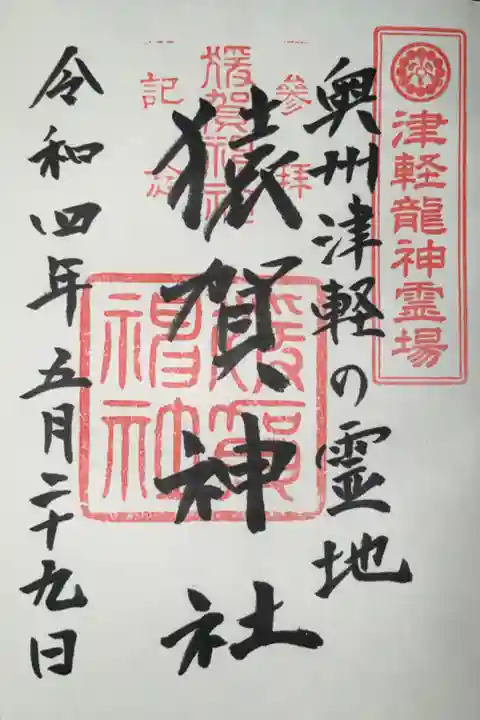 津軽龍神霊場
奥州津軽の霊地
参拝
猿賀神社
猿賀神社
猿賀神社
記念
令和四年五月二十九日